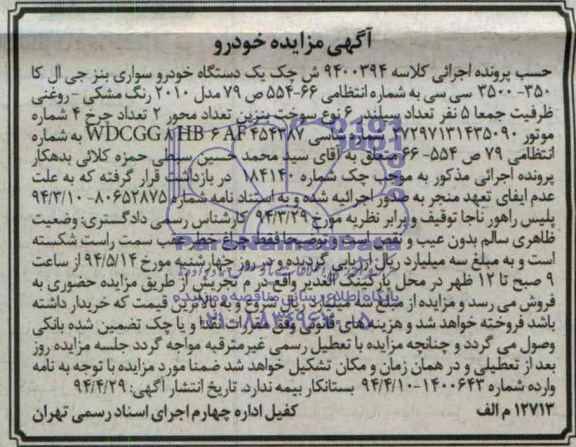 آگهی مزایده خودرو
حسب پرونده اجرائی کلاسه ۹۴۰۰۳۹۴ ش چک یک دستگاه خودرو سواری بنز جی ال کا
۳۵۰- ۳۵۰۰ سی سی به شماره انتظامی ۶۶-۵۵۴ ص ۷۹ مدل ۲۰۱۰ رنگ مشکی - روغنی
ظرفیت جمعا ۵ نفر تعداد سیلندر ۶ نوع سوخت بنزین تعداد محور ۲ تعداد چرخ ۴ شماره
موتور ۲۷۲۹۷۱۳۱۴۳۵۰۹۰ شماره شاسی WDCGG۸HB۶AF۴۵۴۳۸۷ به شماره
انتظامی ۷۹ ص ۵۵۴- ۶۶ متعلق به آقای سید محمد حسین سبطی حمزه کلائی بدهکار
پرونده اجرائی مذکور به موجب چک شماره ۱۸۴۱۴۰ در بازداشت قرار گرفته که به علت
عدم ایفای تعهد منجر به صدور اجرائیه شده و به استناد نامه شماره ۸۰۶۵۲۸۷۵- ۹۴/۳/۱۰
پلیس راهور ناجا توقیف و برابر نظریه مورخ ۹۴/۳/۲۹ کارشناس رسمی دادگستری: وضعیت
ظاهری سالم بدون عیب و نقص است بخصوص فقط چراغ خطر عقب سمت راست شکسته
است و به مبلغ سه میلیارد ریال ارزیابی گردیده و در روز چهارشنبه مورخ ۹۴/۵/۱۴ از ساعت
۹ صبح تا ۱۲ ظهر در محل پارکینگ الغدیر واقع در م تجریش از طریق مزایده حضوری به
فروش می رسد و مزایده از مبلغ سه میلیارد ریال شروع و به بالاترین قیمت که خریدار داشته
باشد فروخته خواهد شد و هزینه های قانونی وفق مقررات نقدا و یا چک تضمین شده بانکی
وصول می گردد و چنانچه مزایده با تعطیل رسمی غیرمترقبه مواجه گردد جلسه مزایده روز
بعد از تعطیلی و در همان زمان و مکان تشکیل خواهد شد ضمنا مورد مزایده با توجه به نامه
وارده شماره ۱۴۰۰۶۴۳-۹۴/۴/۱۰ بستانکار بیمه ندارد. تاریخ انتشار آگهی: ۹۴/۴/۲۹
۱۲۷۱۲ م الف
کفیل اداره چهارم اجرای اسناد رسمی تهران
پایگاه اطلاع رسانی مناقصه و مزایده
۰۲۱-۸۸۳۴۹۶۷۰-۵